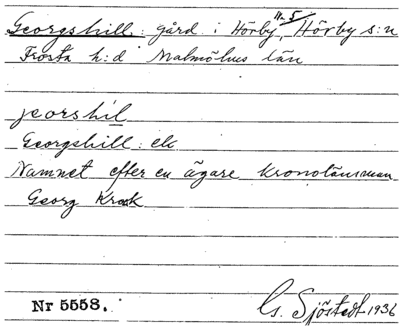 Georgshill: gård i Hörby nr. 5, Hörby s:n
Frosta h:d Malmöhus län
jeorshil
Georgshill: ek
Namnet efter en ägare kronolänsman
Georg Krook
Nr 5558. G. Sjöstedt 1936